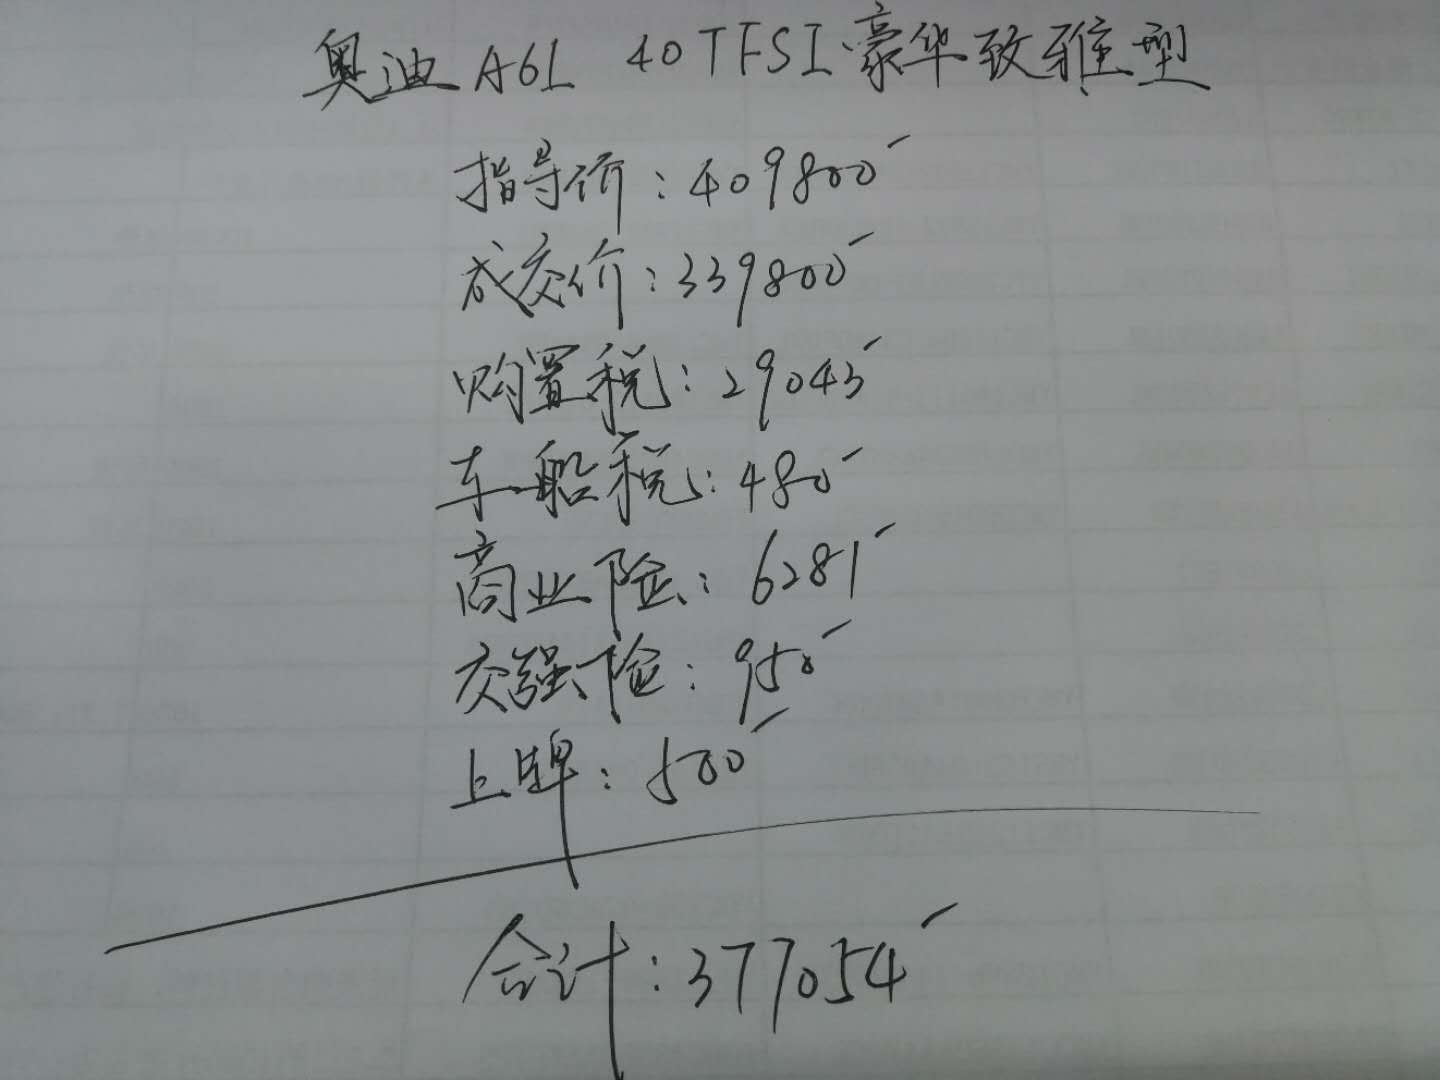 奥迪A6L 40TFSI豪华致雅型
指导价:409800
成交价:339800
购置税:29043
车船税:480
商业险:6281
交强险:950
上牌:500
合计:377054